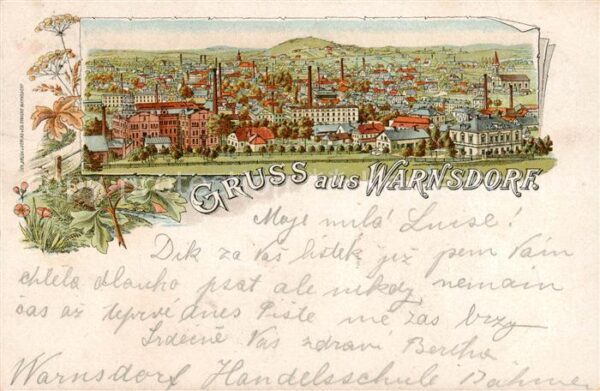 GRUSS aus WARNSDORF.
Moje milá Luise!
Dík za Váš lístek již jsem Vám
chtěla dlouho psát ale nikdy nemám
čas až teprvé dnes Pište mě zas brzy
Srdečně Vás zdraví Bertha
Warnsdorf Handelsschule Böhmen